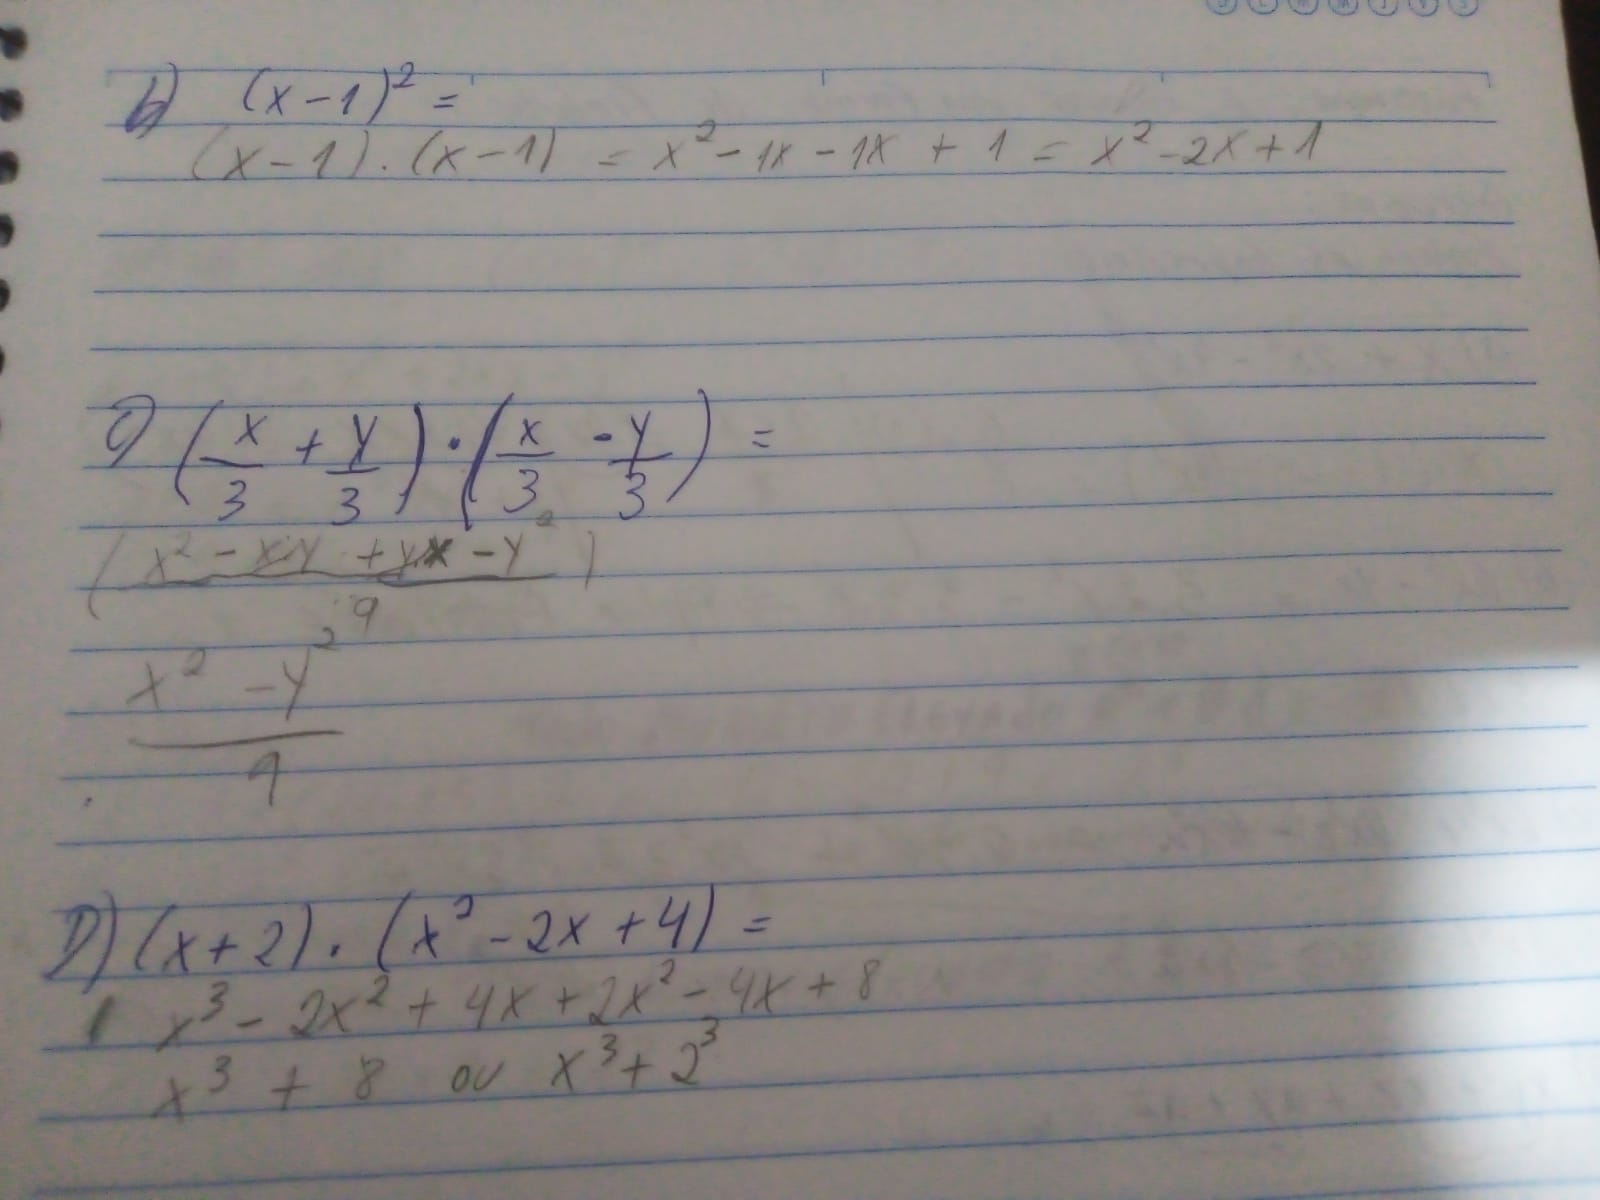 b) (x-1)² =
(x-1).(x-1) = x² - 1x - 1x + 1 = x² - 2x + 1
C) (x/3 + y/3) · (x/3 - y/3) =
(x² - xy + yx - y²)/9
(x² - y²)/9
D) (x+2) . (x² - 2x + 4) =
x³ - 2x² + 4x + 2x² - 4x + 8
x³ + 8 ou x³ + 2³